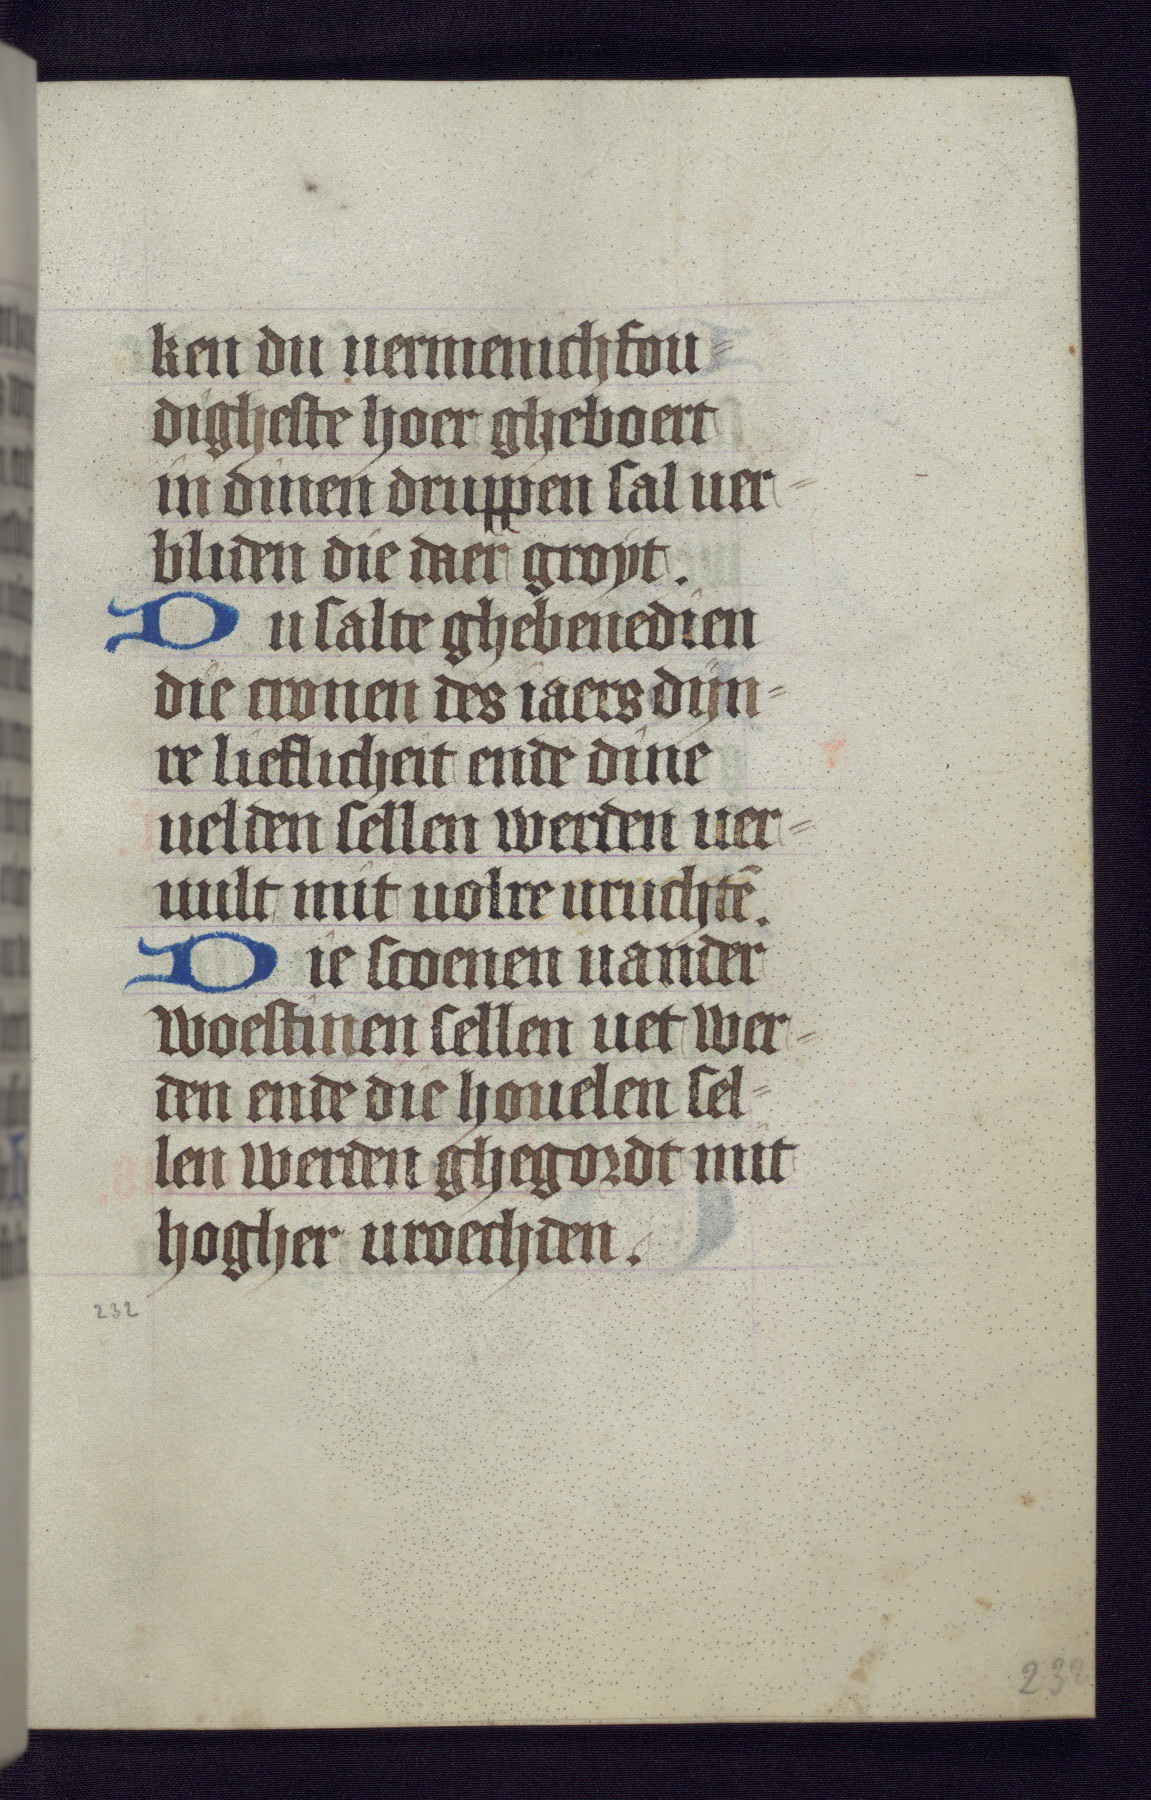 ken du uermenichfou=
digheste hoer gheboert
in dinen druppen sal uer=
bliden die daer groyt.
Du salte ghebenedien
die cronen des iaers dijn=
re lieflicheit ende dine
uelden sellen werden uer=
uult mit uolre uruchtē.
Die scoenen uander
woestinen sellen uet wer=
den ende die houelen sel=
len werden ghegordt mit
hogher uroechden.
232
232